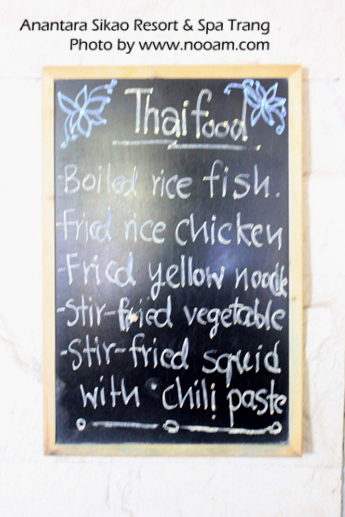 Anantara Sikao Resort & Spa Trang
Photo by www.nooam.com
Thai food
-Boiled rice fish.
-Fried rice chicken
-Fried yellow noodle
-Stir-fried vegetable
-Stir-fried squid
with chili paste